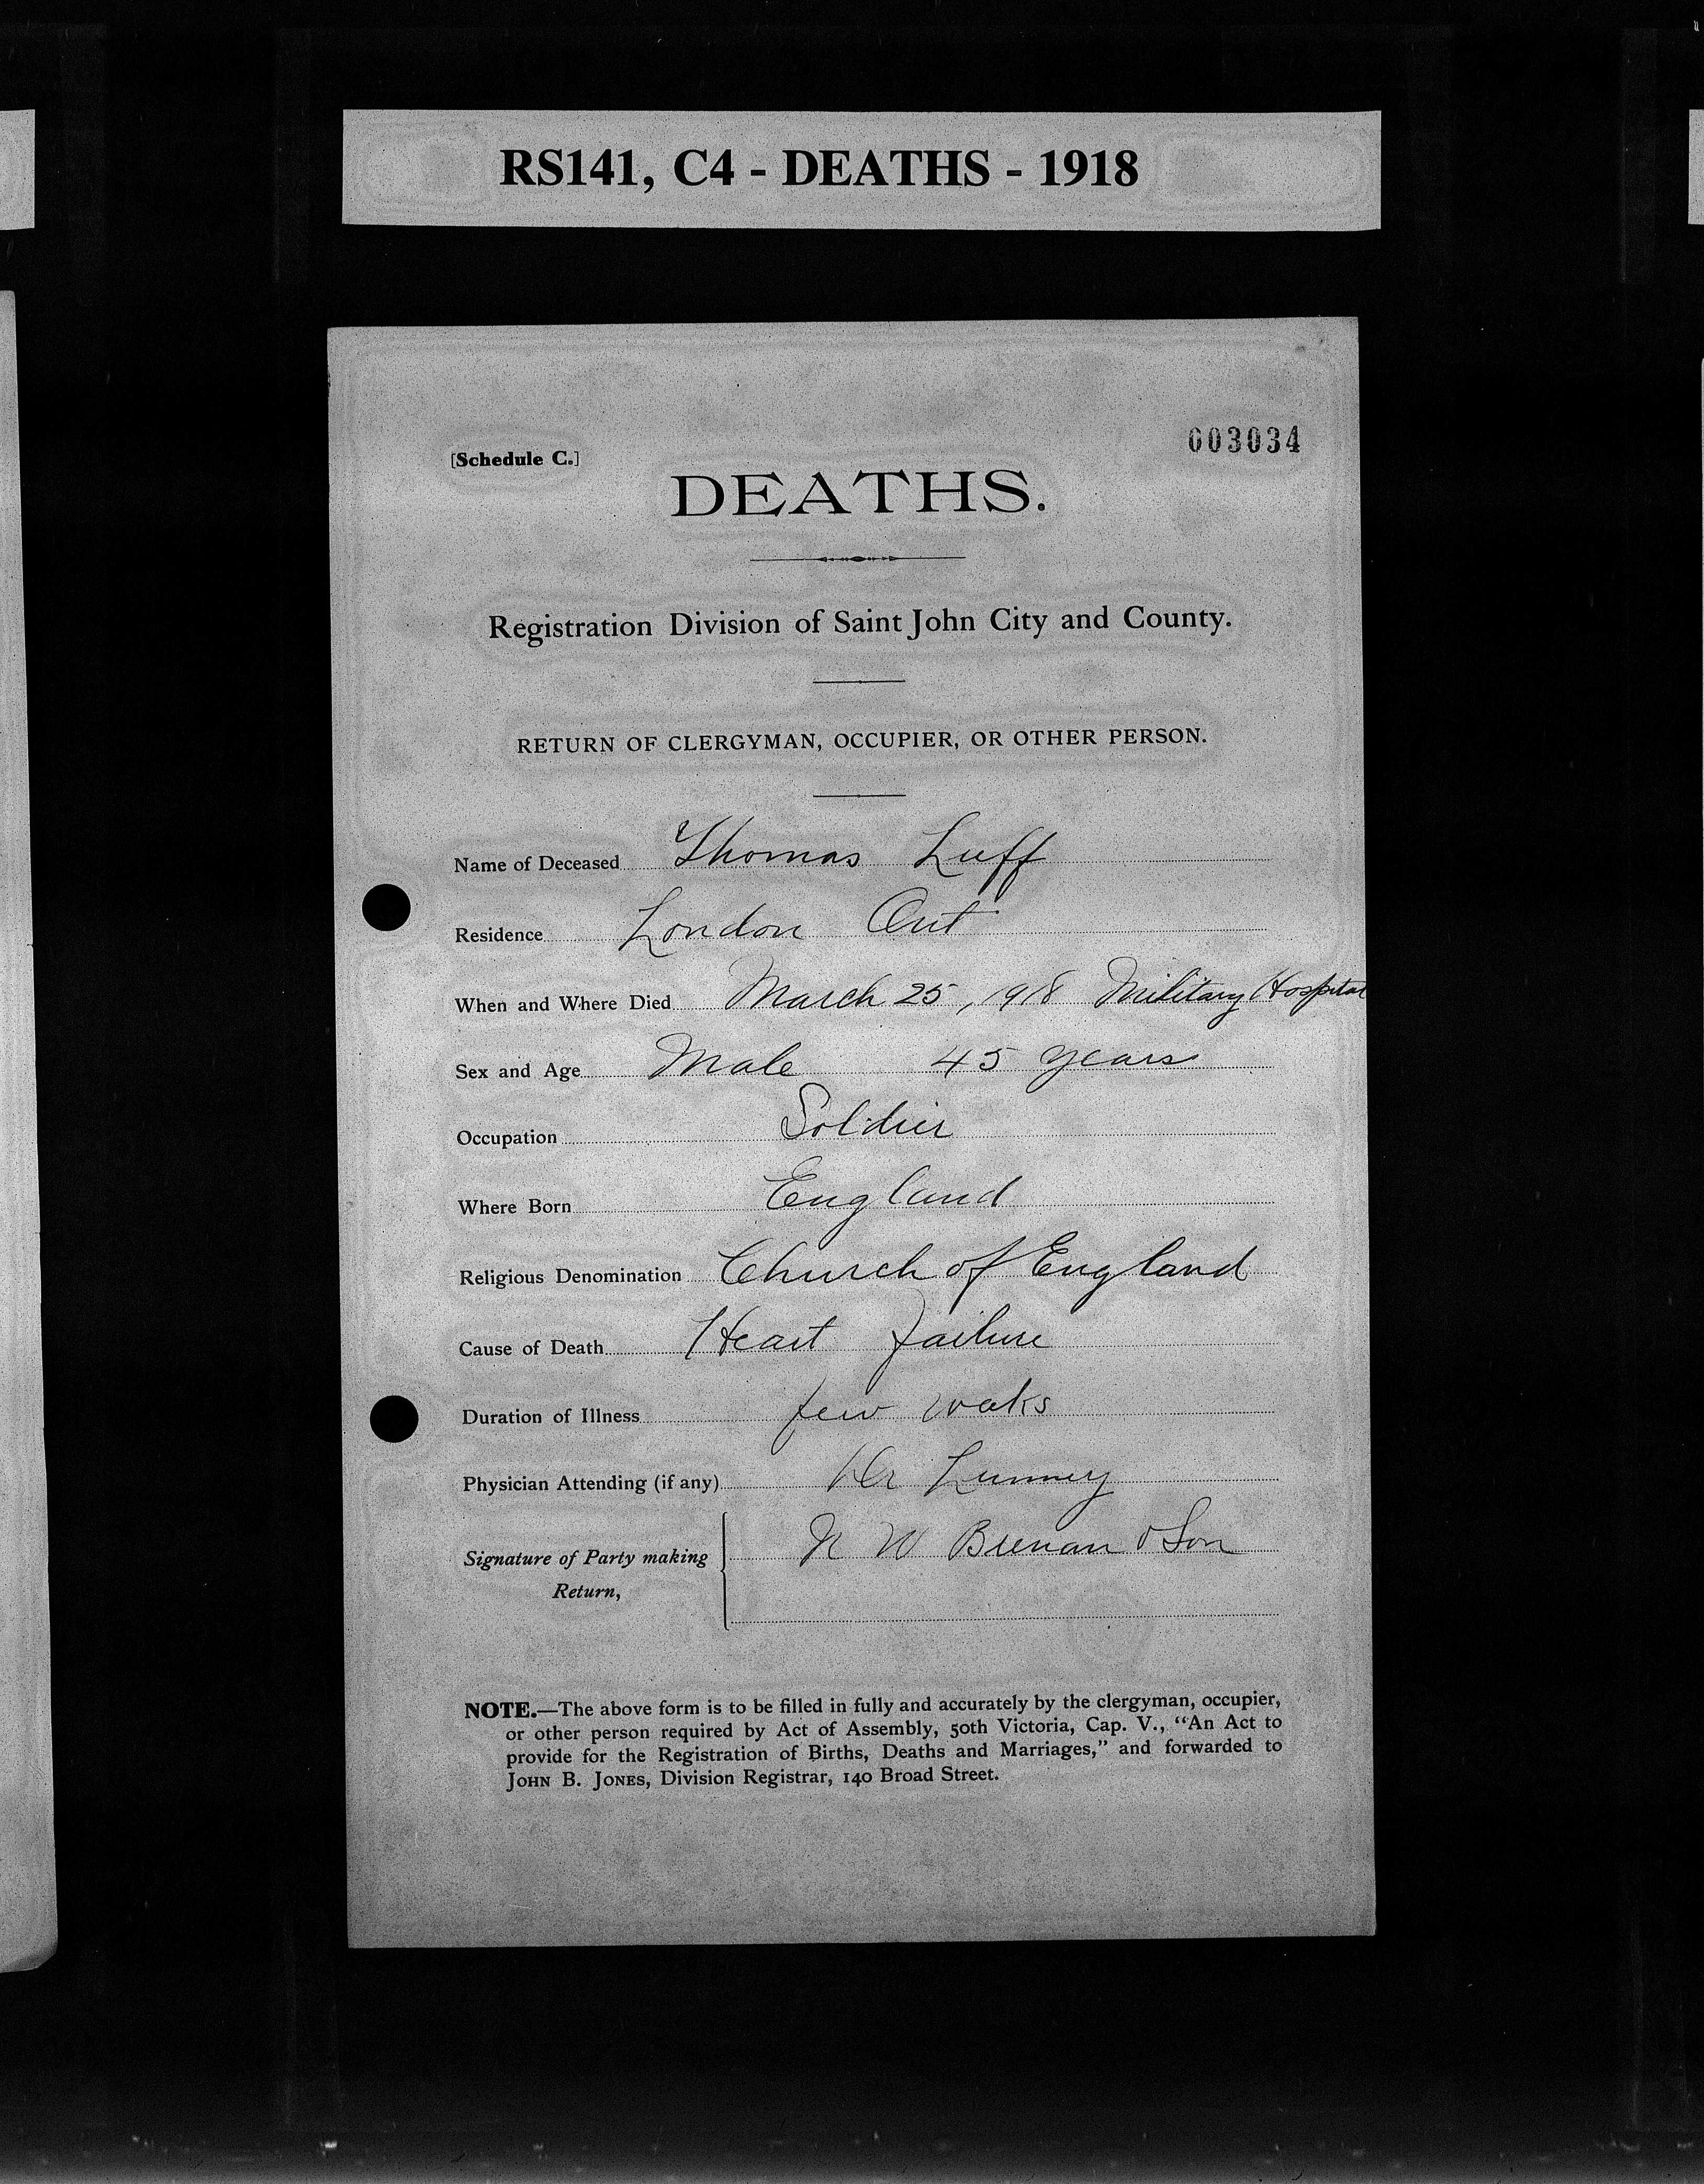 RS141, C4 - DEATHS - 1918
[Schedule C.]
003034
DEATHS.
Registration Division of Saint John City and County.
RETURN OF CLERGYMAN, OCCUPIER, OR OTHER PERSON.
Name of Deceased Thomas Luff
Residence London Ont
When and Where Died March 25, 1918 Military Hospital
Sex and Age Male 45 years
Occupation Soldier
Where Born England
Religious Denomination Church of England
Cause of Death Heart failure
Duration of Illness few weeks
Physician Attending (if any) Dr Lunney
Signature of Party making N W Brenan & Son
Return,
NOTE.—The above form is to be filled in fully and accurately by the clergyman, occupier,
or other person required by Act of Assembly, 50th Victoria, Cap. V., “An Act to
provide for the Registration of Births, Deaths and Marriages,” and forwarded to
JOHN B. JONES, Division Registrar, 140 Broad Street.